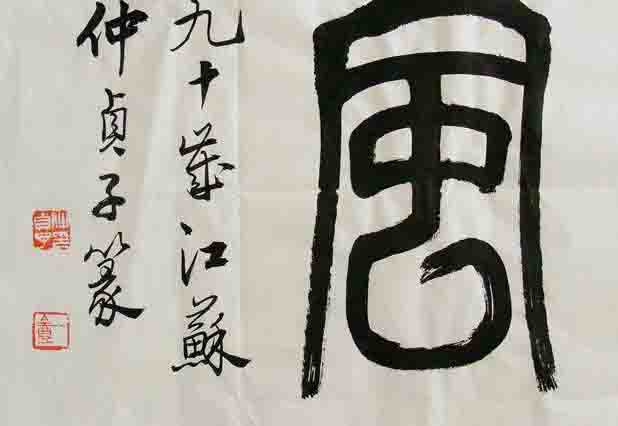 風
九十歲江蘇
仲貞子篆